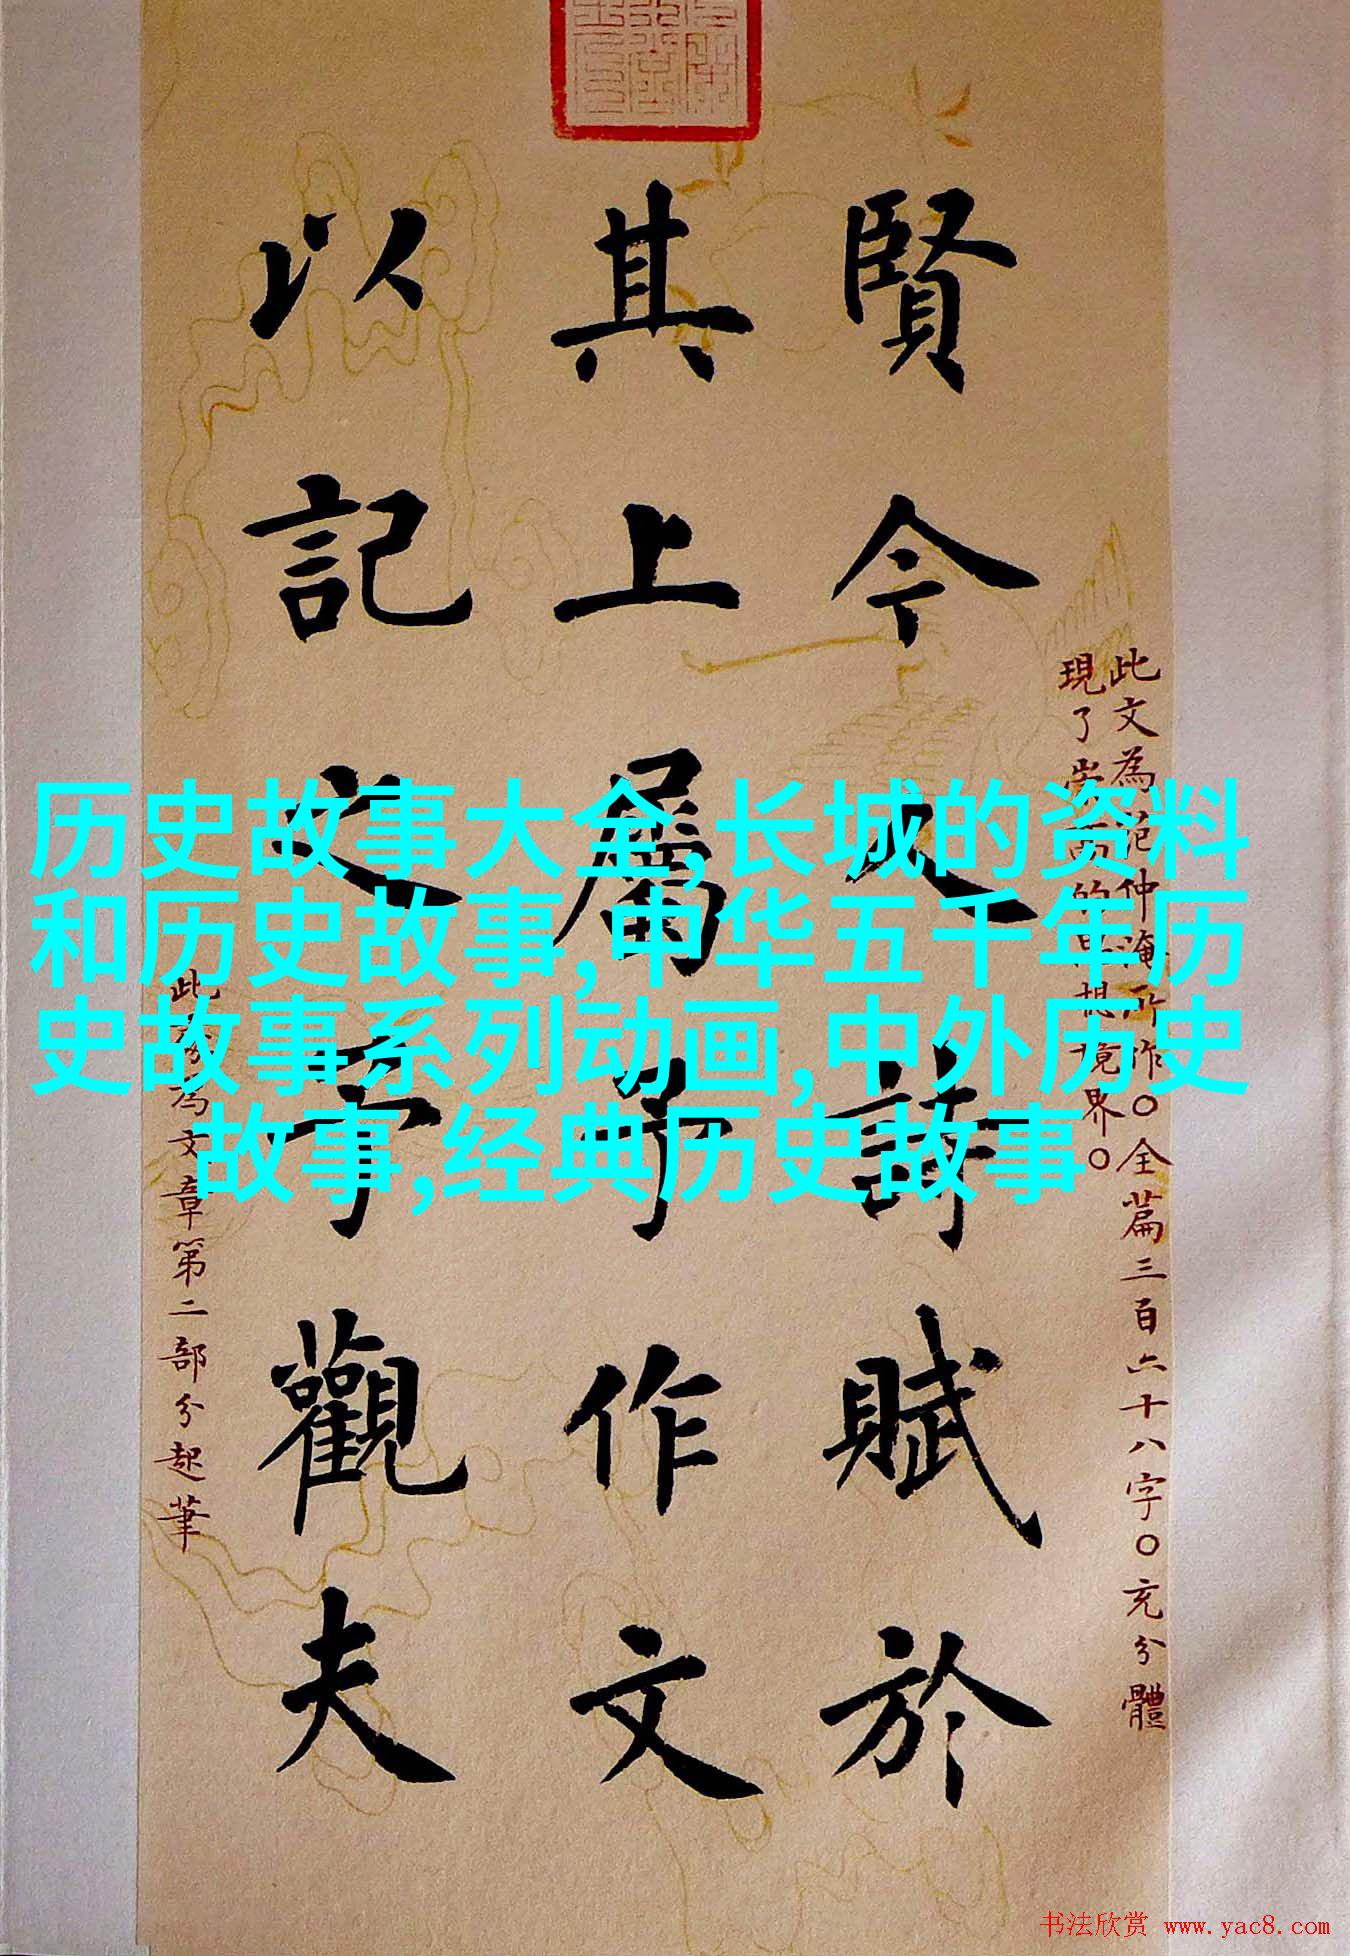 历史故事大全,长城的资料
和历史故事,中华五千年历
史故事系列动画,中外历史
故事,经典历史故事
此文為范仲淹所作○全篇三百六十八字○充分體
現了崇高的思想境界○
賢今人詩賦於
其上屬予作文
以記之予觀夫
此為文章第二部分起筆
书法欣赏 www.yac8.com